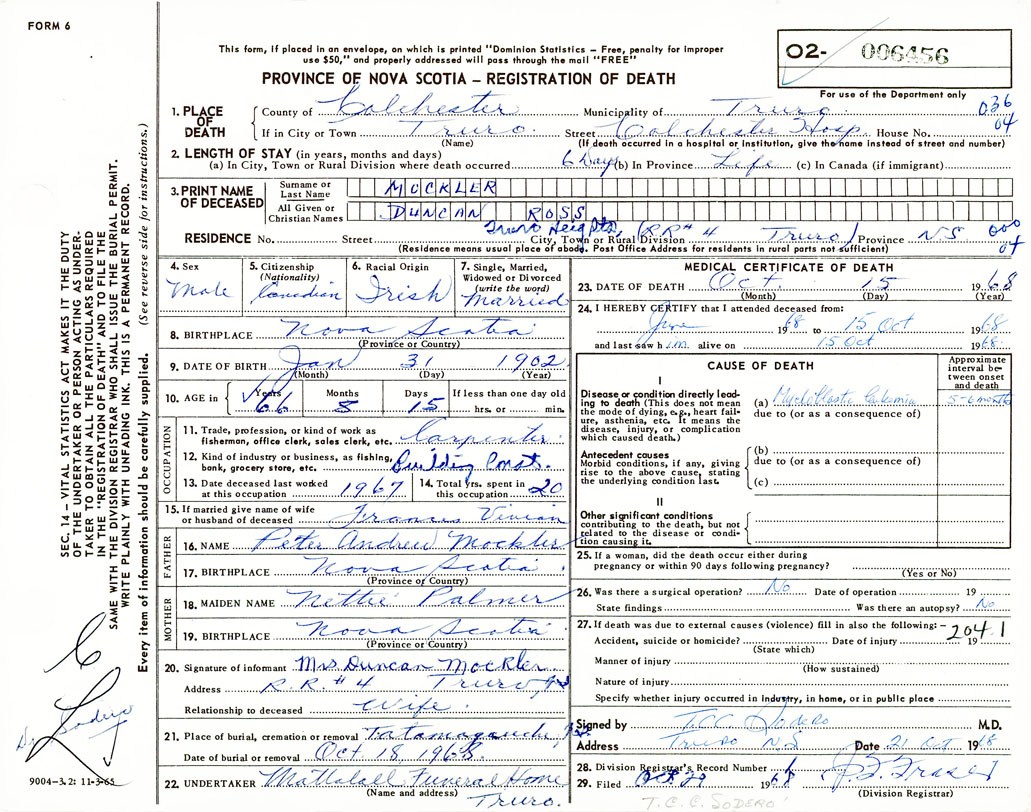 FORM 6
This form, if placed in an envelope, on which is printed "Dominion Statistics – Free, penalty for improper
use $50," and properly addressed will pass through the mail "FREE"
PROVINCE OF NOVA SCOTIA – REGISTRATION OF DEATH
O2- 006456
For use of the Department only
1. PLACE OF DEATH County of Colchester Municipality of Truro 036
If in City or Town Truro. Street Colchester Hosp. House No. 04
(Name) (If death occurred in a hospital or institution, give the name instead of street and number)
2. LENGTH OF STAY (in years, months and days)
(a) In City, Town or Rural Division where death occurred 6 Days (b) In Province Life (c) In Canada (if immigrant)
3. PRINT NAME OF DECEASED Surname or Last Name MOCKLER
All Given or Christian Names DUNCAN ROSS
Truro Heights,
RESIDENCE No. Street City, Town or Rural Division (RR# 4 Truro) Province NS 000
(Residence means usual place of abode. Post Office Address for residents in rural parts not sufficient) 04
4. Sex Male
5. Citizenship (Nationality) Canadian
6. Racial Origin Irish
7. Single, Married, Widowed or Divorced (write the word) Married
8. BIRTHPLACE Nova Scotia
(Province or Country)
9. DATE OF BIRTH Jan 31 1902
(Month) (Day) (Year)
10. AGE in Years 66 Months 8 Days 15 If less than one day old hrs. or min.
OCCUPATION
11. Trade, profession, or kind of work as fisherman, office clerk, sales clerk, etc. Carpenter
12. Kind of industry or business, as fishing, bank, grocery store, etc. Building Const.
13. Date deceased last worked at this occupation 1967
14. Total yrs. spent in this occupation 20
15. If married give name of wife or husband of deceased Frances Vivian
FATHER
16. NAME Peter Andrew Mockler
17. BIRTHPLACE Nova Scotia
(Province or Country)
MOTHER
18. MAIDEN NAME Nettie Palmer
19. BIRTHPLACE Nova Scotia
(Province or Country)
20. Signature of informant Mrs Duncan Mockler
Address R.R.# 4 Truro, NS
Relationship to deceased Wife.
21. Place of burial, cremation or removal Tatamagouche, NS
Date of burial or removal Oct 18 1968.
22. UNDERTAKER Mattatall Funeral Home
(Name and address) Truro.
MEDICAL CERTIFICATE OF DEATH
23. DATE OF DEATH Oct. 15 1968
(Month) (Day) (Year)
24. I HEREBY CERTIFY that I attended deceased from:
June 1968 to 15 Oct 1968
and last saw him alive on 15 Oct 1968
CAUSE OF DEATH
Approximate interval between onset and death
I
Disease or condition directly leading to death (This does not mean the mode of dying, e.g., heart failure, asthenia, etc. It means the disease, injury, or complication which caused death.)
(a) Myeloblastic leukemia 5-6 months
due to (or as a consequence of)
Antecedent causes
Morbid conditions, if any, giving rise to the above cause, stating the underlying condition last.
(b)
due to (or as a consequence of)
(c)
II
Other significant conditions contributing to the death, but not related to the disease or condition causing it.
25. If a woman, did the death occur either during pregnancy or within 90 days following pregnancy?
(Yes or No)
26. Was there a surgical operation? No Date of operation 19
State findings Was there an autopsy? No
27. If death was due to external causes (violence) fill in also the following: – 204.1
Accident, suicide or homicide? Date of injury 19
(State which)
Manner of injury
(How sustained)
Nature of injury
Specify whether injury occurred in industry, in home, or in public place
Signed by T.C.C. Sodero M.D.
Address Truro N.S Date 21 Oct 1968
28. Division Registrar's Record Number
29. Filed Oct 29 1968
(Division Registrar)
T. C. C. SODERO
SEC. 14 – VITAL STATISTICS ACT MAKES IT THE DUTY
OF THE UNDERTAKER OR PERSON ACTING AS UNDER-
TAKER TO OBTAIN ALL THE PARTICULARS REQUIRED
IN THE "REGISTRATION OF DEATH" AND TO FILE THE
SAME WITH THE DIVISION REGISTRAR WHO SHALL ISSUE THE BURIAL PERMIT.
WRITE PLAINLY WITH UNFADING INK. THIS IS A PERMANENT RECORD.
Every item of information should be carefully supplied. (See reverse side for instructions.)
Dr Sodero
9004-3.2: 11-3-65